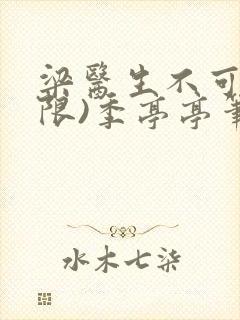 梁醫生不可
限)季亭亭筆
水木七柒